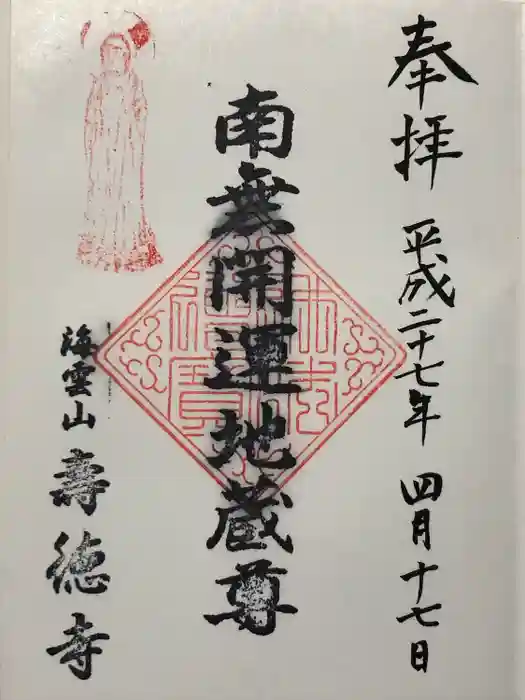 奉拝 平成二十七年 四月十七日
南無開運地蔵尊
海雲山 壽徳寺